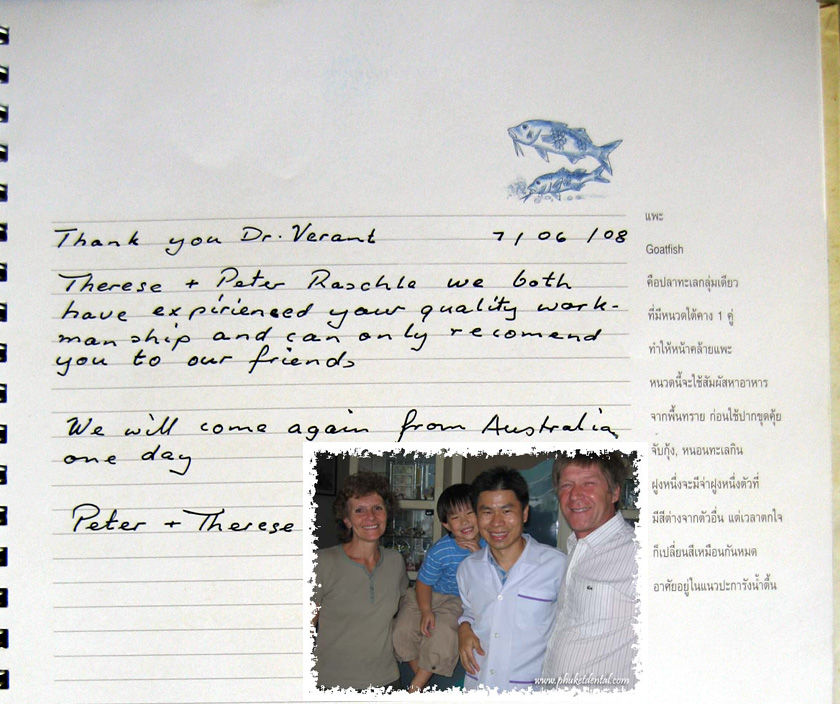 Thank you Dr. Verant 7/06/08
Therese + Peter Raschle we both
have expirienced your quality work-
manship and can only recomend
you to our friends
We will come again from Australia
one day
Peter + Therese
แพะ
Goatfish
คือปลาทะเลกลุ่มเดียว
ที่มีหนวดใต้คาง 1 คู่
ทำให้หน้าคล้ายแพะ
หนวดนี้จะใช้สัมผัสหาอาหาร
จากพื้นทราย ก่อนใช้ปากขุดคุ้ย
จับกุ้ง, หนอนทะเลกิน
ฝูงหนึ่งจะมีจ่าฝูงหนึ่งตัวที่
มีสีต่างจากตัวอื่น แต่เวลาตกใจ
ก็เปลี่ยนสีเหมือนกันหมด
อาศัยอยู่ในแนวปะการังน้ำตื้น
www.phuketdental.com